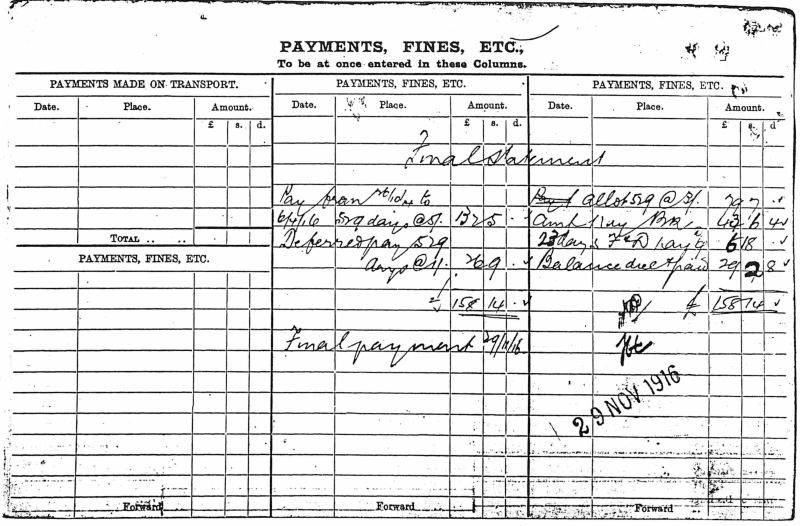 PAYMENTS, FINES, ETC.,
To be at once entered in these Columns.
PAYMENTS MADE ON TRANSPORT.
Date. Place. Amount.
£ s. d.
TOTAL .. ..
PAYMENTS, FINES, ETC.
Forward
PAYMENTS, FINES, ETC.
Date. Place. Amount.
£ s. d.
Final Statement
Pay from to
529 days @ 5/. 132 5 .
Deferred pay 529
days @ 1/. 26 9 .
£ 158 14 .
Final payment 29/11/16
Forward
PAYMENTS, FINES, ETC.
Date. Place. Amount.
£ s. d
allot 529 @ 3/. 79 7
43 6 4
23 days 6 18
Balance due & paid 29 2 8
£ 158 14
29 NOV 1916
Forward